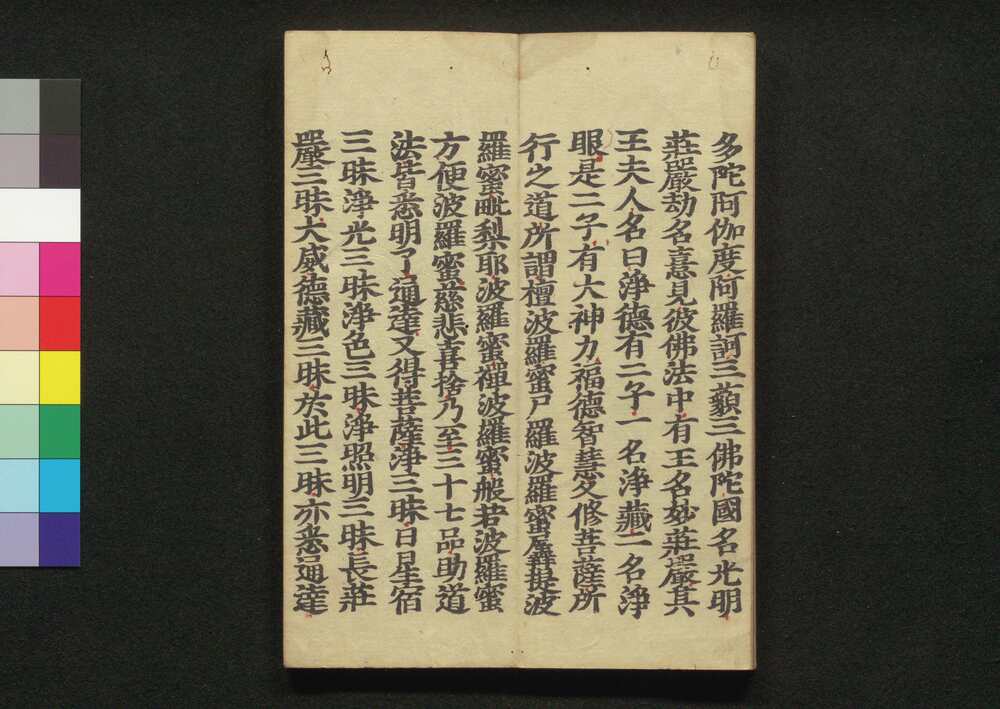 多陀阿伽度阿羅訶三藐三佛陀國名光明
莊嚴劫名憙見彼佛法中有王名妙莊嚴其
王夫人名曰淨德有二子一名淨藏二名淨
眼是二子有大神力福德智慧久修菩薩所
行之道所謂檀波羅蜜尸羅波羅蜜羼提波
羅蜜毗梨耶波羅蜜禪波羅蜜般若波羅蜜
方便波羅蜜慈悲喜捨乃至三十七品助道
法皆悉明了通達又得菩薩淨三昧日星宿
三昧淨光三昧淨色三昧淨照明三昧長莊
嚴三昧大威德藏三昧於此三昧亦悉通達